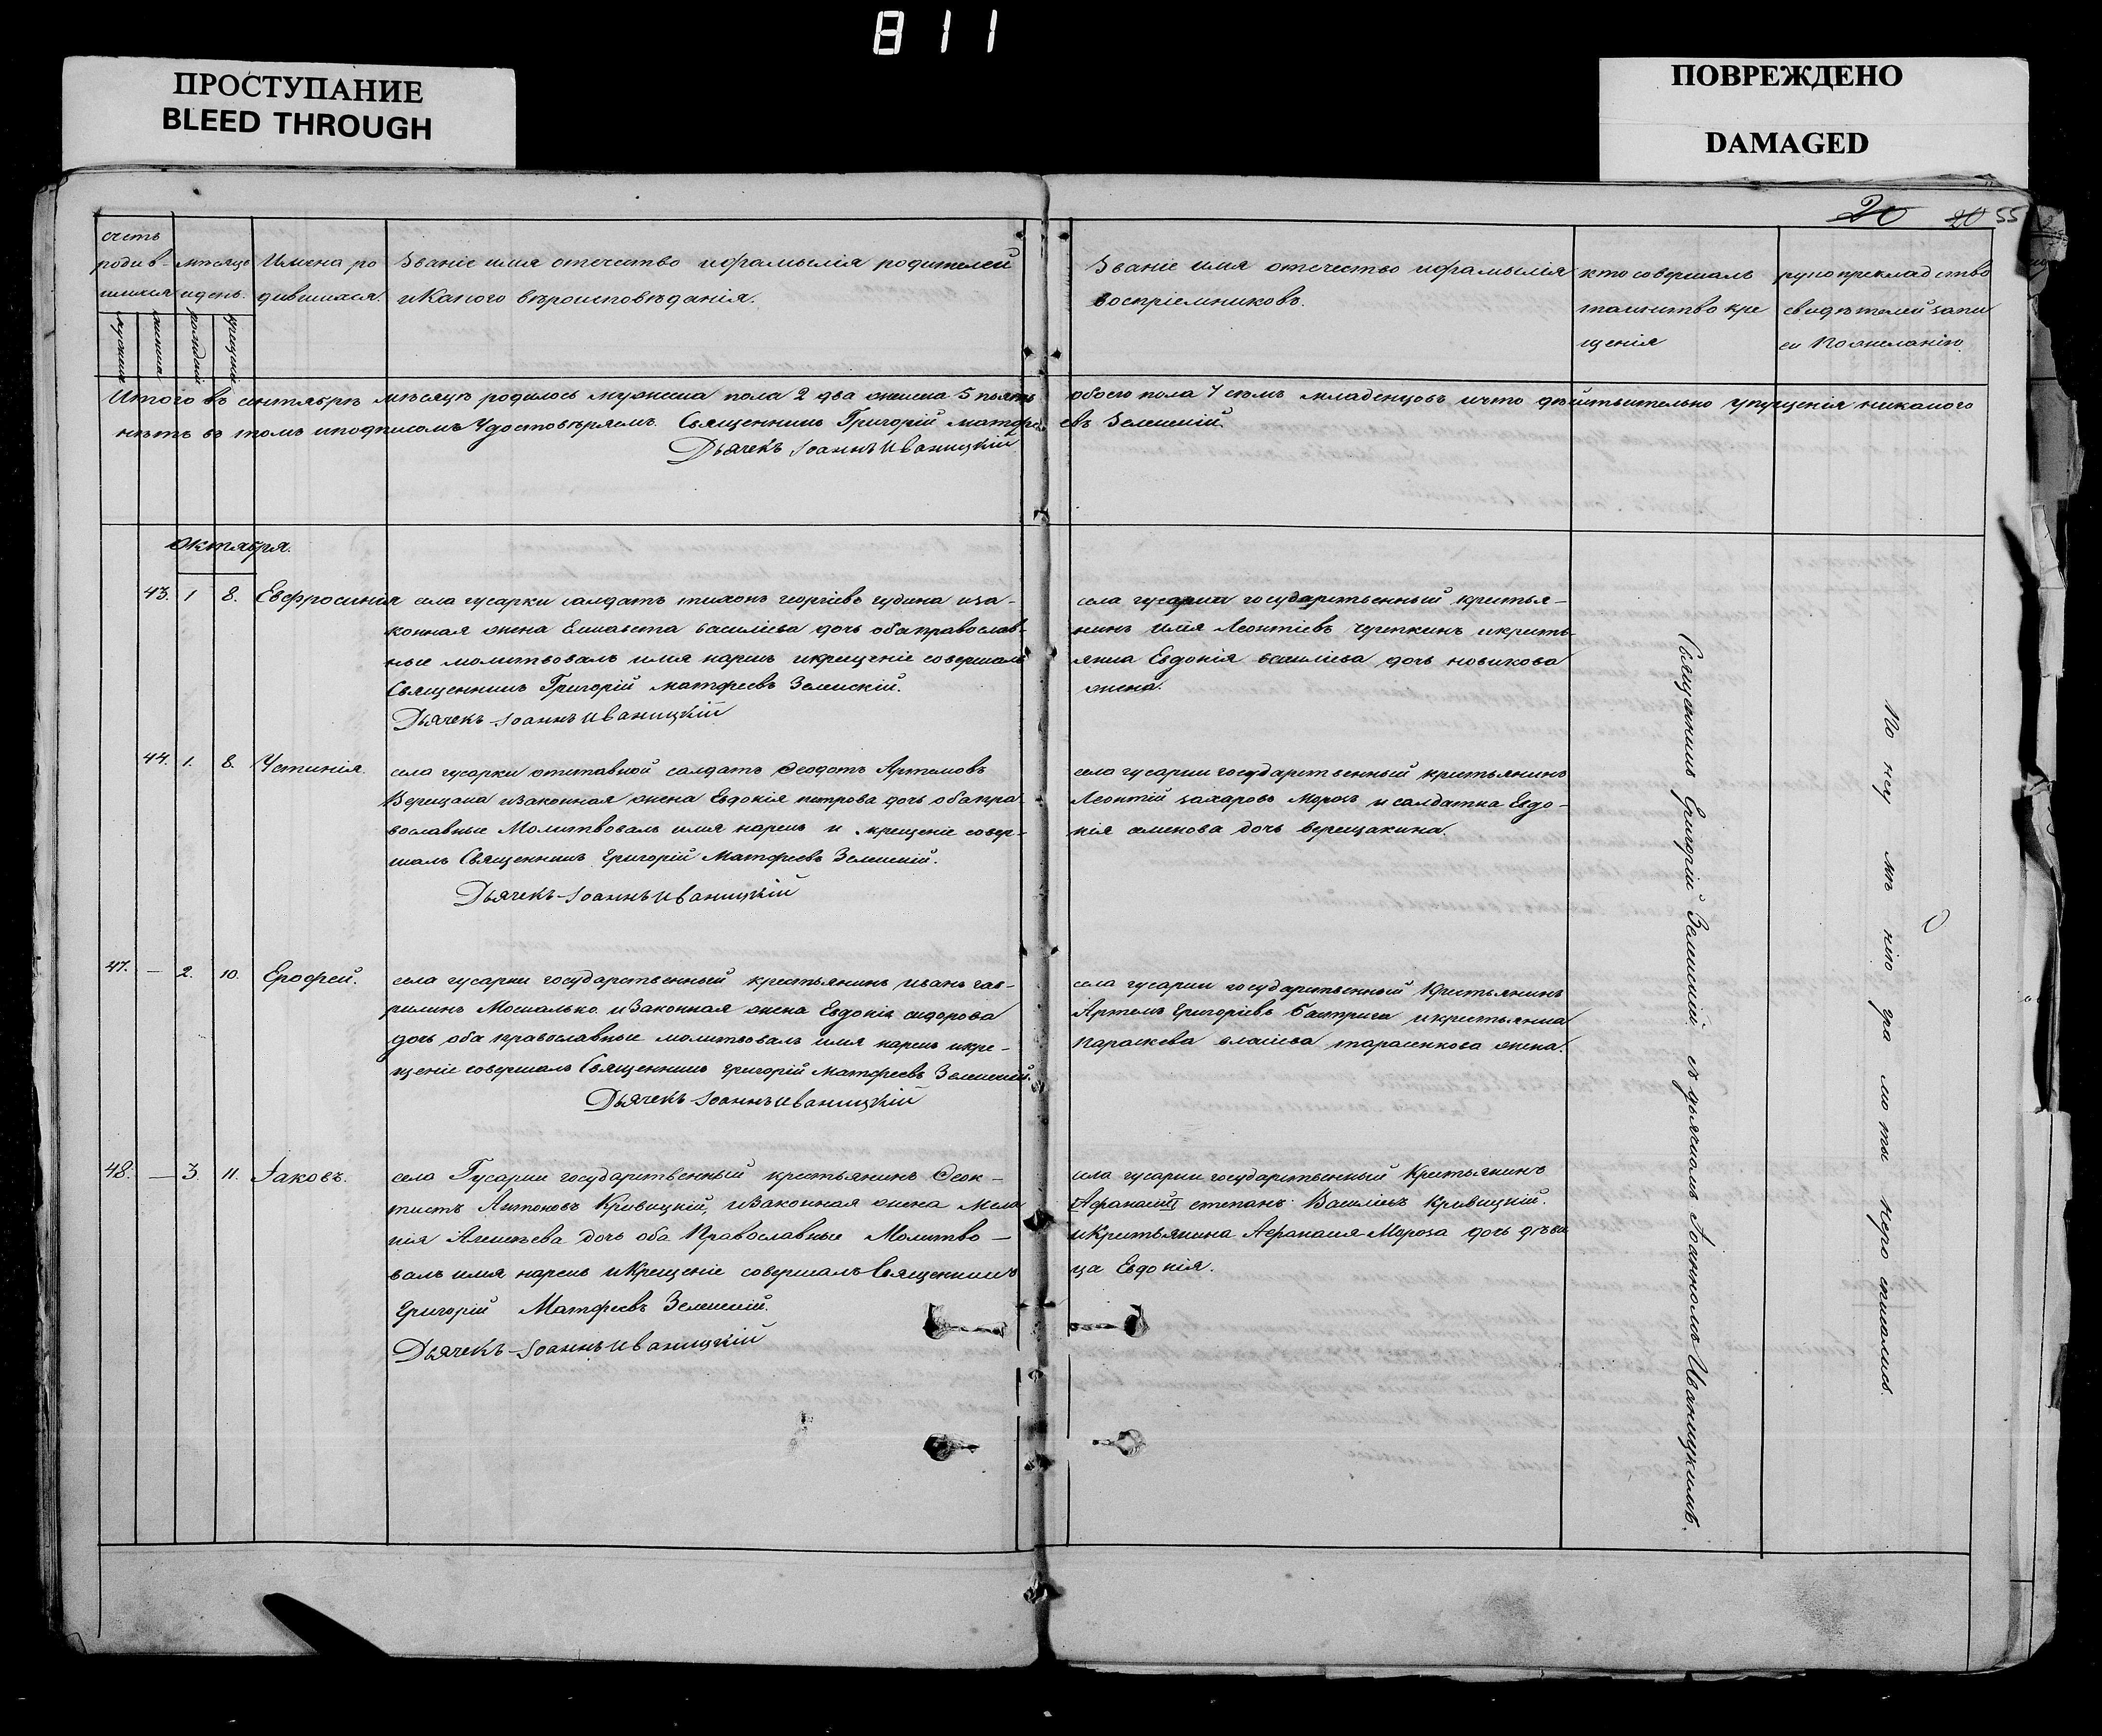 811
ПРОСТУПАНИЕ
BLEED THROUGH
ПОВРЕЖДЕНО
DAMAGED
20 20 55
счетъ
родив-
шихся
мѣсяцъ
идень.
Имена ро
дившихся.
Званіе имя отечество ифамылія родителей
икакого вѣроисповѣданія.
Званіе имя отечество ифамылія
воспріемниковъ.
кто совершалъ
таинство кре
щенія
рукоприкладство
свидѣтелей запи
си по желанію
мужска
женска
рожденій
крещеній
Итого въ сентябрѣ мѣсяцѣ родилось мужеска пола 2 два женска 5 пьять обоего пола 7 семъ младенцовъ ичто дѣйствительно упущенія никакого
нѣтъ въ томъ иподписомъ Удостовѣряемъ. Священникъ Григорій Матфеевъ Зеленскій.
Дьячекъ Іоаннъ Иваницкій
Октября.
43. 1 8. Евфросинія
села гусарки салдатъ тихонъ георгіевъ гудима иза-
конная жена Елисавета василіева дочь обаправослав-
ные молитвовалъ имя нарекъ икрещеніе совершалъ
Священникъ Григорій матфеевъ Зеленскій.
Дьячекъ Іоаннъ Иваницкій
села гусарки государственный крестья-
нинъ Илія Леонтіевъ икресть-
янка Евдокія василіева дочь новикова
жена.
44. 1. 8. Устинія.
села гусарки отставной салдатъ Ѳеодотъ Артемовъ
Верещака изаконная жена Евдокія петрова дочь обапра-
вославные Молитвовалъ имя нарекъ и крещеніе совер-
шалъ Священникъ Григорій Матфеевъ Зеленскій.
Дьячекъ Іоаннъ Иваницкій
села гусарки государственный крестьянинъ
Леонтій захаровъ Морозъ и салдатка Евдо-
кія семенова дочь верещакина.
47. — 2. 10. Ерофей.
села гусарки государственный крестьянинъ иванъ гав-
рилинъ Москалько изаконная жена Евдокія сидорова
дочь оба православные молитвовалъ имя нарекъ икре-
щеніе совершалъ Священникъ григорій матфеевъ Зеленскій.
Дьячекъ Іоаннъ Иваницкій
села гусарки государственный Крестьянинъ
Артемъ Григоріевъ Бастрига икрестьянка
параскева власіева тарасенкова жена.
48. — 3. 11. Іаковъ.
села Гусарки государственный крестьянинъ Ѳеок-
тистъ Антоновъ Кривицкій, изаконная жена Мела
нія Алексѣева дочь оба Православные Молитво-
валъ имя нарекъ иКрещеніе совершалъ Священникъ
Григорій Матфеевъ Зеленскій.
Дьячекъ Іоаннъ Иваницкій
села гусарки государственный Крестьянинъ
Афанасій степанъ Василіевъ Кривицкій.
иКрестьянина Афанасія Мороза дочь дѣви
ца Евдокія.
Священникъ Григорій Зеленскій съ дьячкомъ Іоанномъ Иваницкимъ.
По неумѣнію грамоты неросписались.